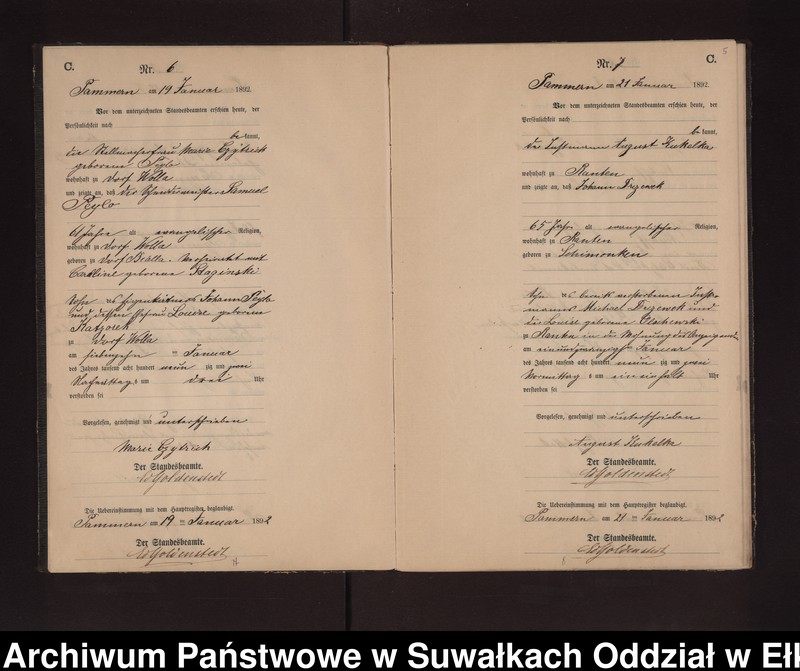 C.
Nr. 6
Tammern am 19 Januar 1892.
Vor dem unterzeichneten Standesbeamten erschien heute, der
Persönlichkeit nach
be kannt,
die Stellmacherfrau Marie Czytrich
geborene Pylo
wohnhaft zu Dorf Wolla
und zeigte an, daß der Samuel
Pylo
61 Jahre alt evangelischer Religion,
wohnhaft zu Dorf Wolla
geboren zu Dorf Bialla. Verheirathet mit
Caroline geborene Raginski
Sohn des Eigenkäthners Johann Pylo
und dessen Ehefrau Louise geborene
zu Dorf Wolla
am siebenzehn ten Januar
des Jahres tausend acht hundert neun zig und zwei
Nachmittags um drei Uhr
verstorben sei
Vorgelesen, genehmigt und unterschrieben
Marie Czytrich
Der Standesbeamte.
Goldenstedt
Die Uebereinstimmung mit dem Hauptregister beglaubigt.
Tammern am 19 ten Januar 1892
Der Standesbeamte.
Goldenstedt
5
C.
Nr. 7
Tammern am 21 Januar 1892.
Vor dem unterzeichneten Standesbeamten erschien heute, der
Persönlichkeit nach
be kannt,
der Losmann August Kukelka
wohnhaft zu Ranten
und zeigte an, daß Johann Drzewek
65 Jahre alt evangelischer Religion,
wohnhaft zu Ranten
geboren zu Schimonken
Sohn des bereits verstorbenen
manns Michael Drzewek und
der Louise geborene Olschewski
zu Ranten in der Wohnung des
am einundzwanzigsten Januar
des Jahres tausend acht hundert neun zig und zwei
Vormittag s um eineinhalb Uhr
verstorben sei
Vorgelesen, genehmigt und unterschrieben
August Kukelka
Der Standesbeamte.
Goldenstedt
Die Uebereinstimmung mit dem Hauptregister beglaubigt.
Tammern am 21 ten Januar 1892
Der Standesbeamte.
Goldenstedt
Archiwum Państwowe w Suwałkach Oddział w Eł